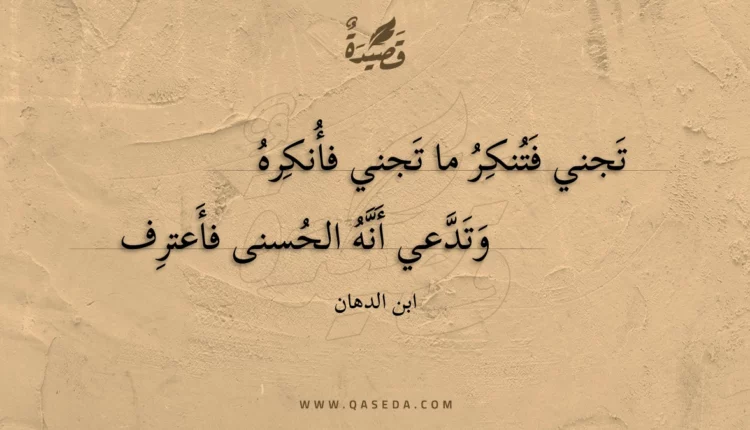 قَصيدَةٌ
تَجني فَتُنكِرُ ما تَجني فأُنكِرهُ
وَتَدَّعي أَنَّهُ الحُسنى فأَعترِف
ابن الدهان
WWW.QASEDA.COM